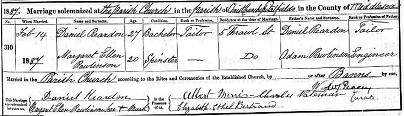 1887. Marriage solemnized at The Parish Church in the Parish of Spitalfields in the County of Middlesex
When Married. Name and Surname. Age. Condition. Rank or Profession. Residence at the time of Marriage. Father's Name and Surname. Rank or Profession of Father.
310 Feb 14 Daniel Reardon 27 Bachelor Tailor 5 Thrawl St Daniel Reardon Tailor
1887 Margaret Ellen Rawlinson 20 Spinster — Do Adam Rawlinson Engineer
Married in the Parish Church according to the Rites and Ceremonies of the Established Church, by or after Banns by me,
This Marriage was solemnized between us, Daniel Reardon in the Presence of us, Albert Charles Curate
Margaret Ellen Rawlinson Elizabeth Ethel Bertrand